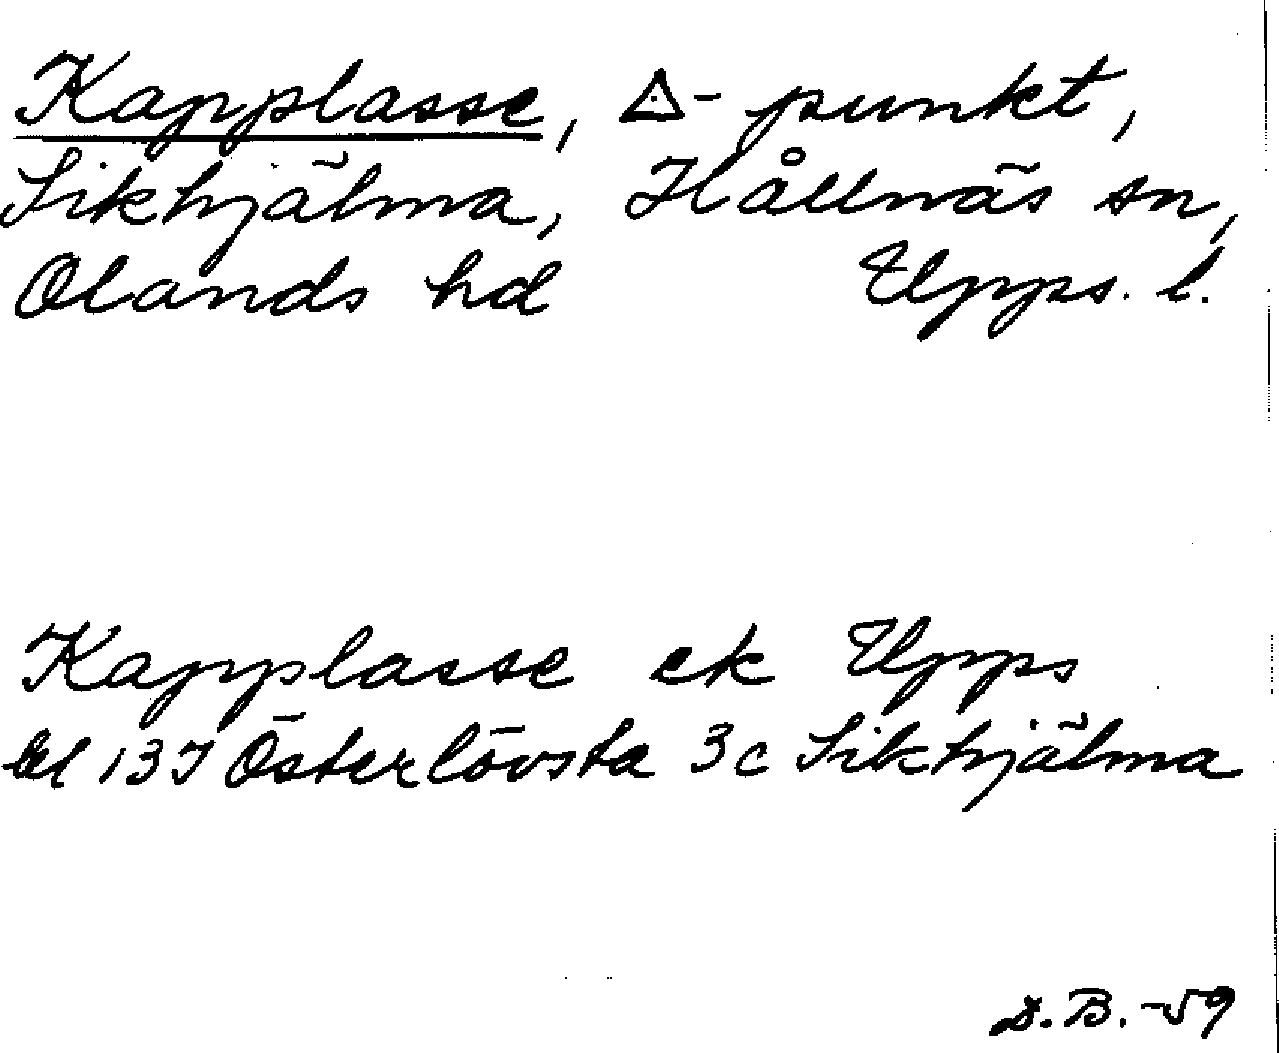 Kapplasse, △-punkt,
Sikhjälma, Hållnäs sn,
Olands hd Upps. l.
Kapplasse ek Upps
bl 13I Österlövsta 3c Sikhjälma
D.B.-59